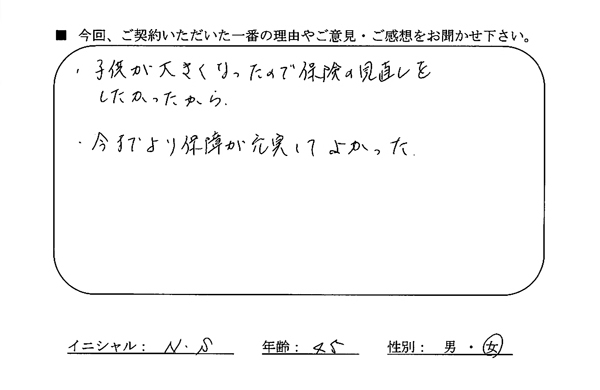 ■ 今回、ご契約いただいた一番の理由やご意見・ご感想をお聞かせ下さい。
・子供が大きくなったので保険の見直しを
したかったから.
・今までより保障が充実してよかった.
イニシャル： N.S 年齢： 45 性別： 男 ・ 女